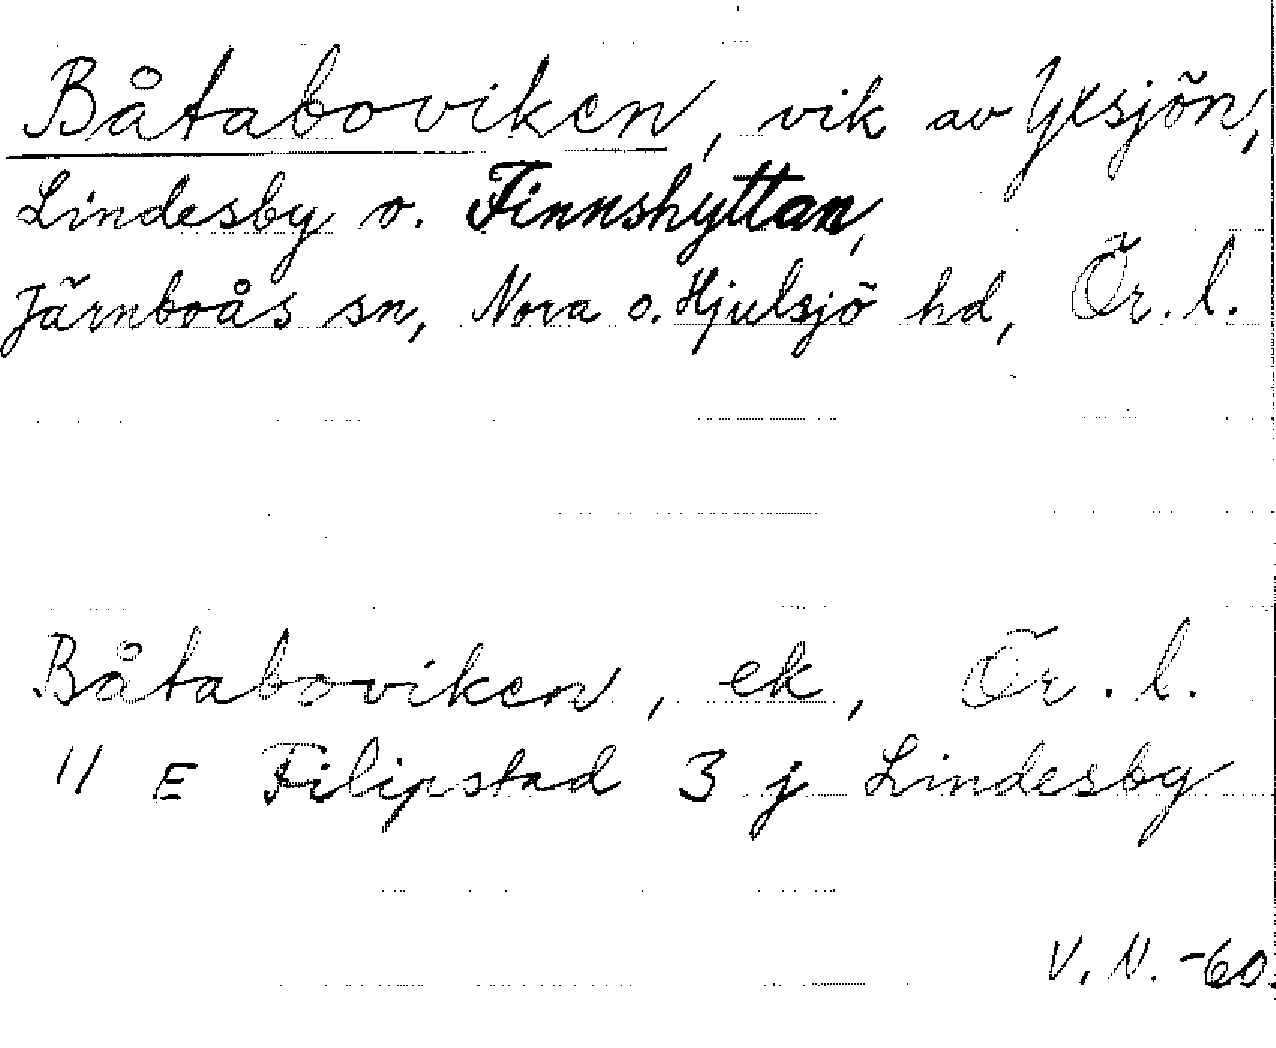 Båtaboviken, vik av Yxsjön,
Lindesby o. Finnshyttan,
Järnboås sn, Nora o. Hjulsjö hd, Ör. l.
Båtaboviken, ek, Ör. l.
11 E Filipstad 3 j Lindesby
V. N. -60.